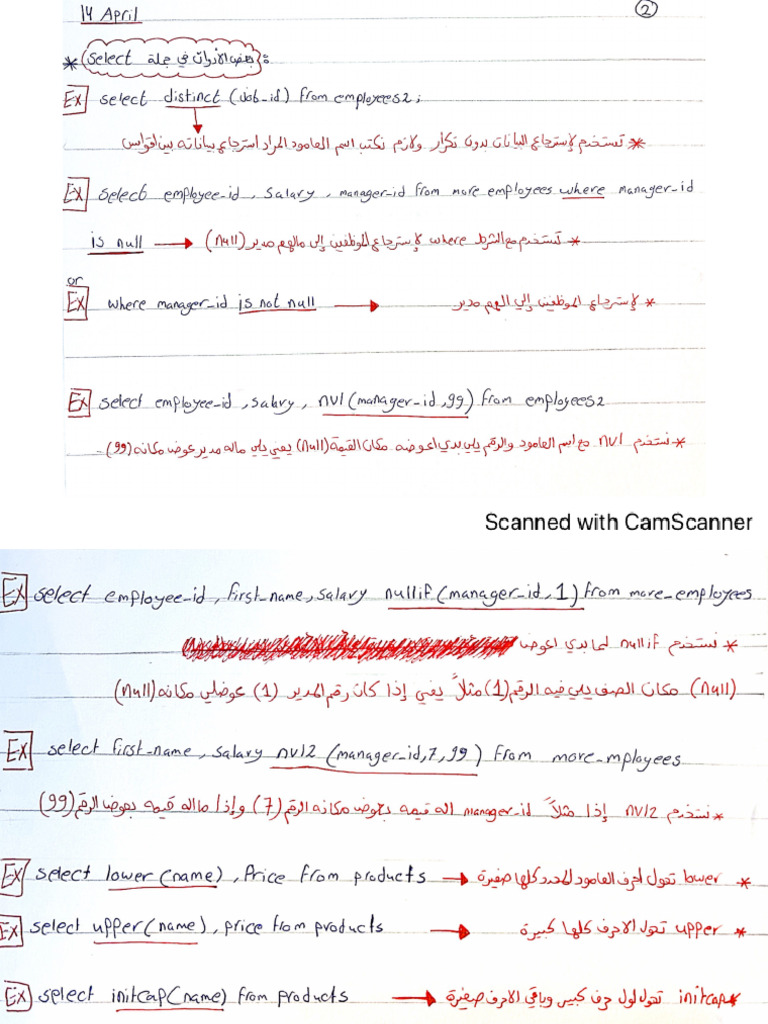 14 April
2
* بعض الأدوات في جملة select :
EX select distinct (Job_id) from employees2;
* تستخدم لإسترجاع البيانات بدون تكرار ولازم نكتب اسم العامود المراد استرجاع بياناته بين اقواس
EX select employee_id, salary, manager_id from more employees where manager_id
is null → * تستخدم مع الشرط where لإسترجاع الموظفين إلي مالهم مدير (null)
or
EX where manager_id is not null → * لإسترجاع الموظفين إلي الهم مدير
EX select employee_id, salary, nvl(manager_id,99) from employees2
* نستخدم nvl مع اسم العامود والرقم يلي بدي اعوضه مكان القيمة (null) يعني يلي ماله مدير عوض مكانه (99).
Scanned with CamScanner
EX select employee_id, first_name, salary nullif(manager_id,1) from more_employees
* نستخدم nullif لما بدي اعوض
(null) مكان الصف يلي فيه الرقم (1) مثلاً يعني إذا كان رقم المدير (1) عوضلي مكانه (null)
EX select first_name, salary nvl2 (manager_id,7,99) from more_mployees
* نستخدم nvl2 إذا مثلاً manager_id اله قيمه بعوض مكانه الرقم (7) وإذا ماله قيمه بعوض الرقم (99)
EX select lower(name), Price from products → * lower تحول أحرف العامود المحدد كلها صغيرة
EX select upper(name), price from products → * upper تحول الاحرف كلها كبيرة
EX select initcap(name) from products → * initcap تحول اول حرف كبير وباقي الاحرف صغيرة